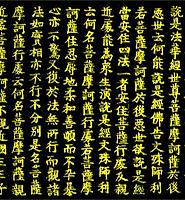 說是法華經世尊菩薩摩訶薩於後
惡世云何能說是經佛告文殊師利
若菩薩摩訶薩於後惡世欲說是經
當安住四法一者安住菩薩行處及親
近處能為眾生演說是經文殊師利
云何名菩薩摩訶薩行處若菩薩摩
訶薩住忍辱地柔和善順而不卒暴
心亦不驚又復於法無所行而觀諸
法如實相亦不行不分別是名菩薩
摩訶薩行處云何名菩薩摩訶薩親
近處菩薩摩訶薩不親近國王王子